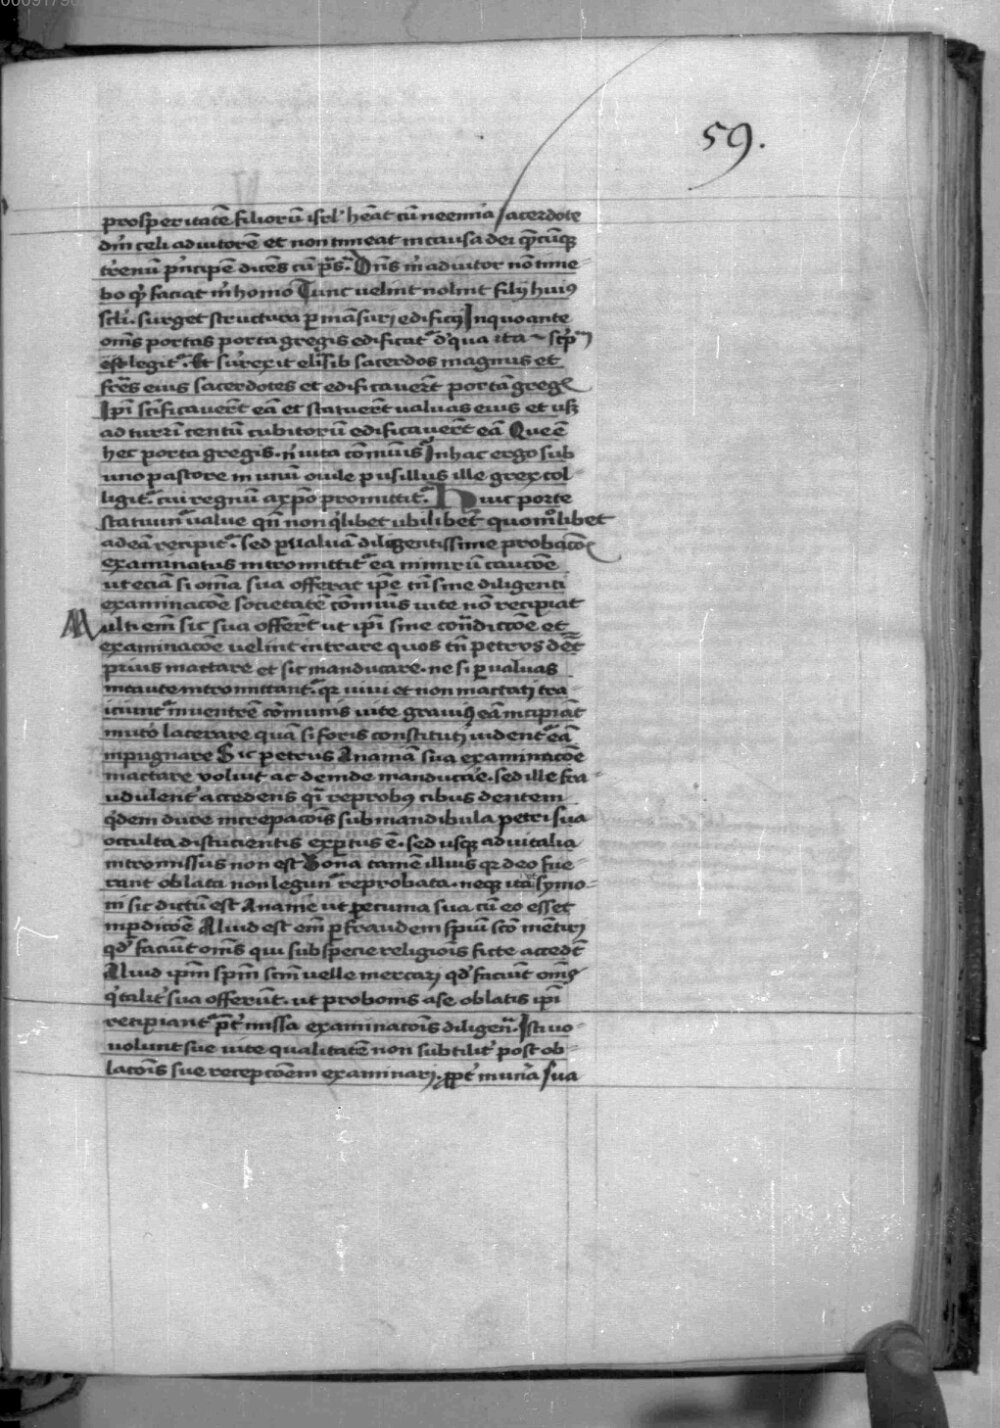 59.
prosperitatē filiorū isrl' hēat cū neemia sacerdote
dm̄ celi adiutorē et non timeat in causa dei q̄cūq̄
tr̄enū p̄ncipē dicēs cū p̄s. Dn̄s m̄ adiutor nō time-
bo q̄ faciat m̄ homo Tunc velint nolint filij huiꝰ
scl̄i. surget structura p̄mansuri edificij In quo ante
om̄s portas porta gregis edificat᷑ d' qua ita
legit᷑. Et surrexit eliasib sacerdos magnus et
fr̄es eius sacerdotes et edificauer̄t portā greḡ
Ip̄i scīficauer̄t eā et statuer̄t valuas eius et usq̄
ad turrī centū cubitorū edificauer̄t eā Que ē
hec porta gregis. n̄ vita cōmunis In hac ergo sub
uno pastore in unū ouile pusillus ille grex col-
ligit᷑. cui regnū a xp̄o promittit᷑. Huic porte
statuunt᷑ value qn̄ non q̄libet ubilibet quomōlibet
ad eā recipit᷑. sed p̄ valuā diligentissime probacōn̄
examinatus intromittit᷑ ea nimirū caucōe
ut eciā si om̄a sua offerat ip̄e tn̄ sine diligenti
examinacōe societatē cōmunis vite nō recipiat
Multi em̄ sic sua offer̄t ut ip̄i sine condiccōe et
examinacōe velint intrare quos tn̄ petrus
prius mactare et sic manducare. ne si p̄ valuas
incaute intromittant᷑. qr viui et non mactati tra-
iciunt᷑ in ventrē cōmunis vite grauiꝰ eā incipiāt
intro lacerare quā si foris constituti vident᷑ eā
inpugnare Sic petrus Ananiā sua examinacōe
mactare voluit ac deinde manducare. sed ille fra-
udulent᷑ accedens q̄i reprobꝰ cibus dentem
q̄dem dure increpacōis sub mandibula petri sua
occulta discucientis exp̄tus ē. sed usq̄ ad vitalia
intromissus non est Bona tamē illius qr deo fue-
rant oblata non legunt᷑ reprobata. neq̄ ita symo-
ni sic dictū est Ananie ut pecunia sua cū eo esset
in p̄dicōe Aliud est em̄ p̄ fraudem spm̄ scm̄ mētiri
qd' faciūt om̄s qui sub specie religiois ficte accedēt
Aliud ip̄m spm̄ scm̄ velle mercari qd' faciūt om̄s
q̄ talit᷑ sua offerūt. ut pro bonis a se oblatis ip̄i
recipiant᷑ p̄t᷑missa examinacōis diligen̄. Isti uo-
volunt sue vite qualitatē non subtilit᷑ post ob-
lacōis sue recepcōem examinari. p̄pt᷑ mun̄a sua